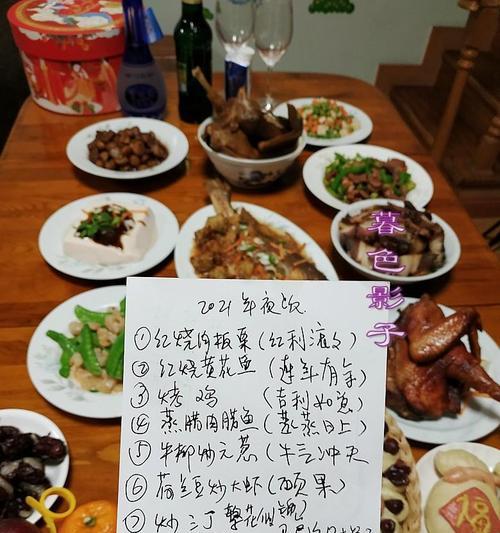 2021年夜饭
①红烧肉板栗(红利滚滚)
②红烧黄花鱼(连年有余)
③烤鸡(吉利如意)
④蒸腊肉腊鱼(蒸蒸日上)
⑤牛柳炒元葱(牛气冲天
⑥荷兰豆炒大虾(硕果)
⑦炒三丁 繁花似锦)
暮色影子
福